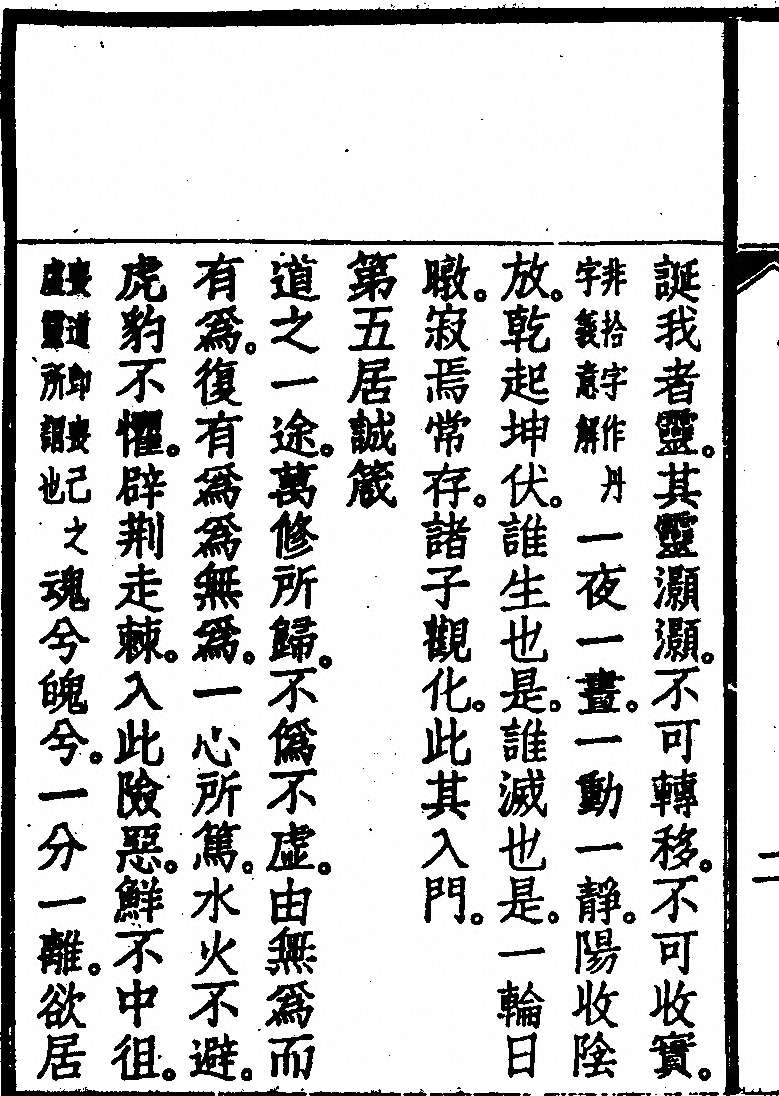 誕我者靈。其靈灝灝。不可轉移。不可收實。
非拾字作丹字義意解一夜一晝。一動一靜。陽收陰
放。乾起坤伏。誰生也是。誰滅也是。一輪日
暾。寂焉常存。諸子觀化。此其入門。
第五居誠箴
道之一途。萬修所歸。不僞不虛。由無爲而
有爲。復有爲爲無爲。一心所篤。水火不避。
虎豹不懼。辟荆走棘。入此險惡。鮮不中徂。
喪道即喪己之虛靈所謂也魂兮魄兮。一分一離。欲居
二